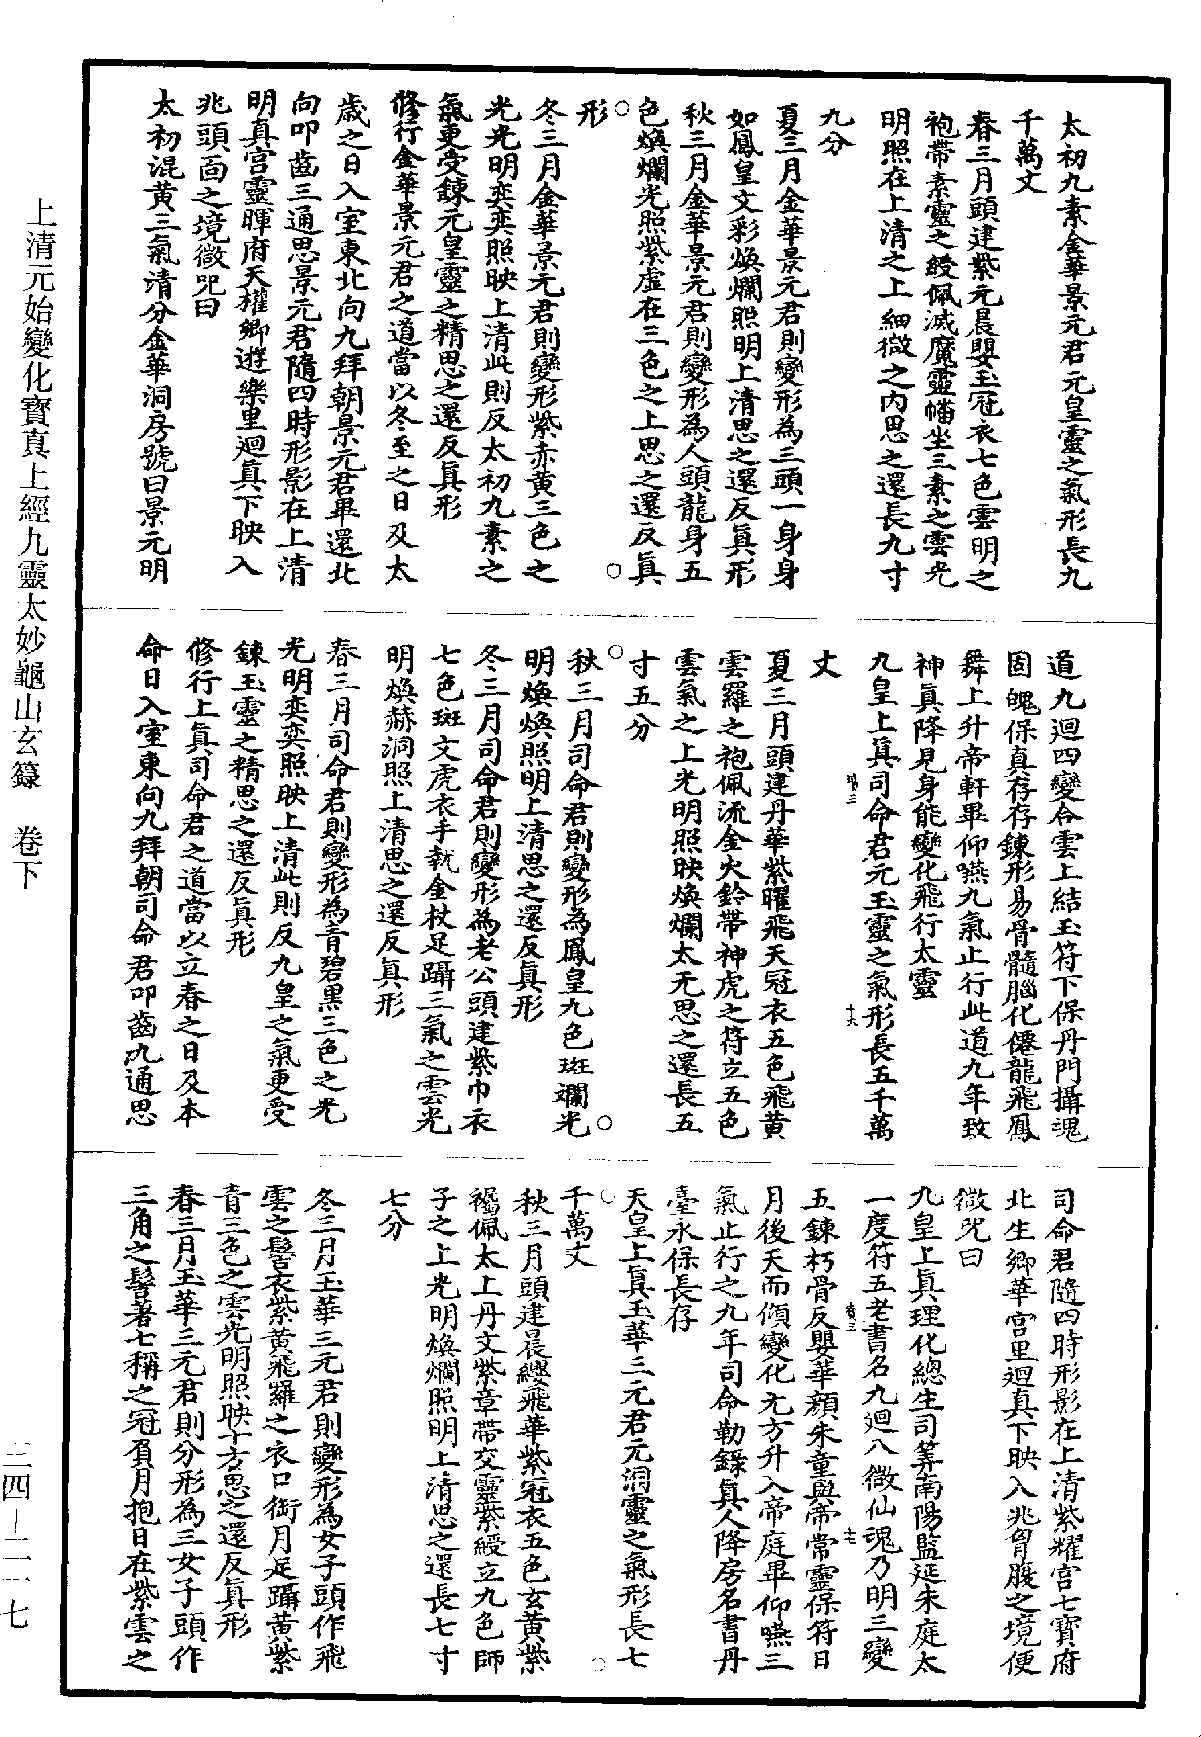 太初九素金華景元君元皇靈之氣形長九
千萬丈
春三月頭建紫元晨嬰玉冠衣七色雲明之
袍帶素靈之綬佩滅魔靈幡坐三素之雲光
明照在上清之上細微之內思之還長九寸
九分
夏三月金華景元君則變形為三頭一身身
如鳳皇文彩煥爛照明上清思之還反真形
秋三月金華景元君則變形為人頭龍身五
色煥爛光照紫虛在三色之上思之還反真
形
冬三月金華景元君則變形紫赤黃三色之
光光明奕奕照映上清此則反太初九素之
氣更受鍊元皇靈之精思之還反真形
修行金華景元君之道當以冬至之日及太
歲之日入室東北向九拜朝景元君畢還北
向叩齒三通思景元君隨四時形影在上清
明真宮靈暉府天權鄉遊樂里迴真下映入
兆頭面之境微咒曰
太初混黃三氣清分金華洞房號曰景元明
道九迴四變合雲上結玉符下保丹門攝魂
固魄保真存存鍊形易骨髓腦化僊龍飛鳳
舞上升帝軒畢仰嚥九氣止行此道九年致
神真降見身能變化飛行太靈
九皇上真司命君元玉靈之氣形長五千萬
丈
夏三月頭建丹華紫曜飛天冠衣五色飛黃
雲羅之袍佩流金火鈴帶神虎之符立五色
雲氣之上光明照映煥爛太无思之還長五
寸五分
秋三月司命君則變形為鳳皇九色斑斕光
明煥煥照明上清思之還反真形
冬三月司命君則變形為老公頭建紫巾衣
七色斑文虎衣手執金杖足躡三氣之雲光
明煥赫洞照上清思之還反真形
春三月司命君則變形為青碧黑三色之光
光明奕奕照映上清此則反九皇之氣更受
鍊玉靈之精思之還反真形
修行上真司命君之道當以立春之日及本
命日入室東向九拜朝司命君叩齒九通思
司命君隨四時形影在上清紫耀宮七寶府
北生鄉華宮里迴真下映入兆胷腹之境便
微咒曰
九皇上真理化總生司筭南陽監延朱庭太
一度符五老書名九迴八微仙魂乃明三變
五鍊朽骨反嬰華顏朱童與帝常靈保符日
月後天而傾變化无方升入帝庭畢仰嚥三
氣止行之九年司命勒錄真人降房名書丹
臺永保長存
天皇上真玉華三元君元洞靈之氣形長七
千萬丈
秋三月頭建晨纓飛華紫冠衣五色玄黃紫
襹佩太上丹文紫章帶交靈紫綬立九色師
子之上光明煥爛照明上清思之還長七寸
七分
冬三月玉華三元君則變形為女子頭作飛
雲之髻衣紫黃飛羅之衣口銜月足躡黃紫
青三色之雲光明照映十方思之還反真形
春三月玉華三元君則分形為三女子頭作
三角之髻著七稱之冠負月抱日在紫雲之
上清元始變化寶真上經九靈太妙龜山玄籙　卷下
三四—二一七